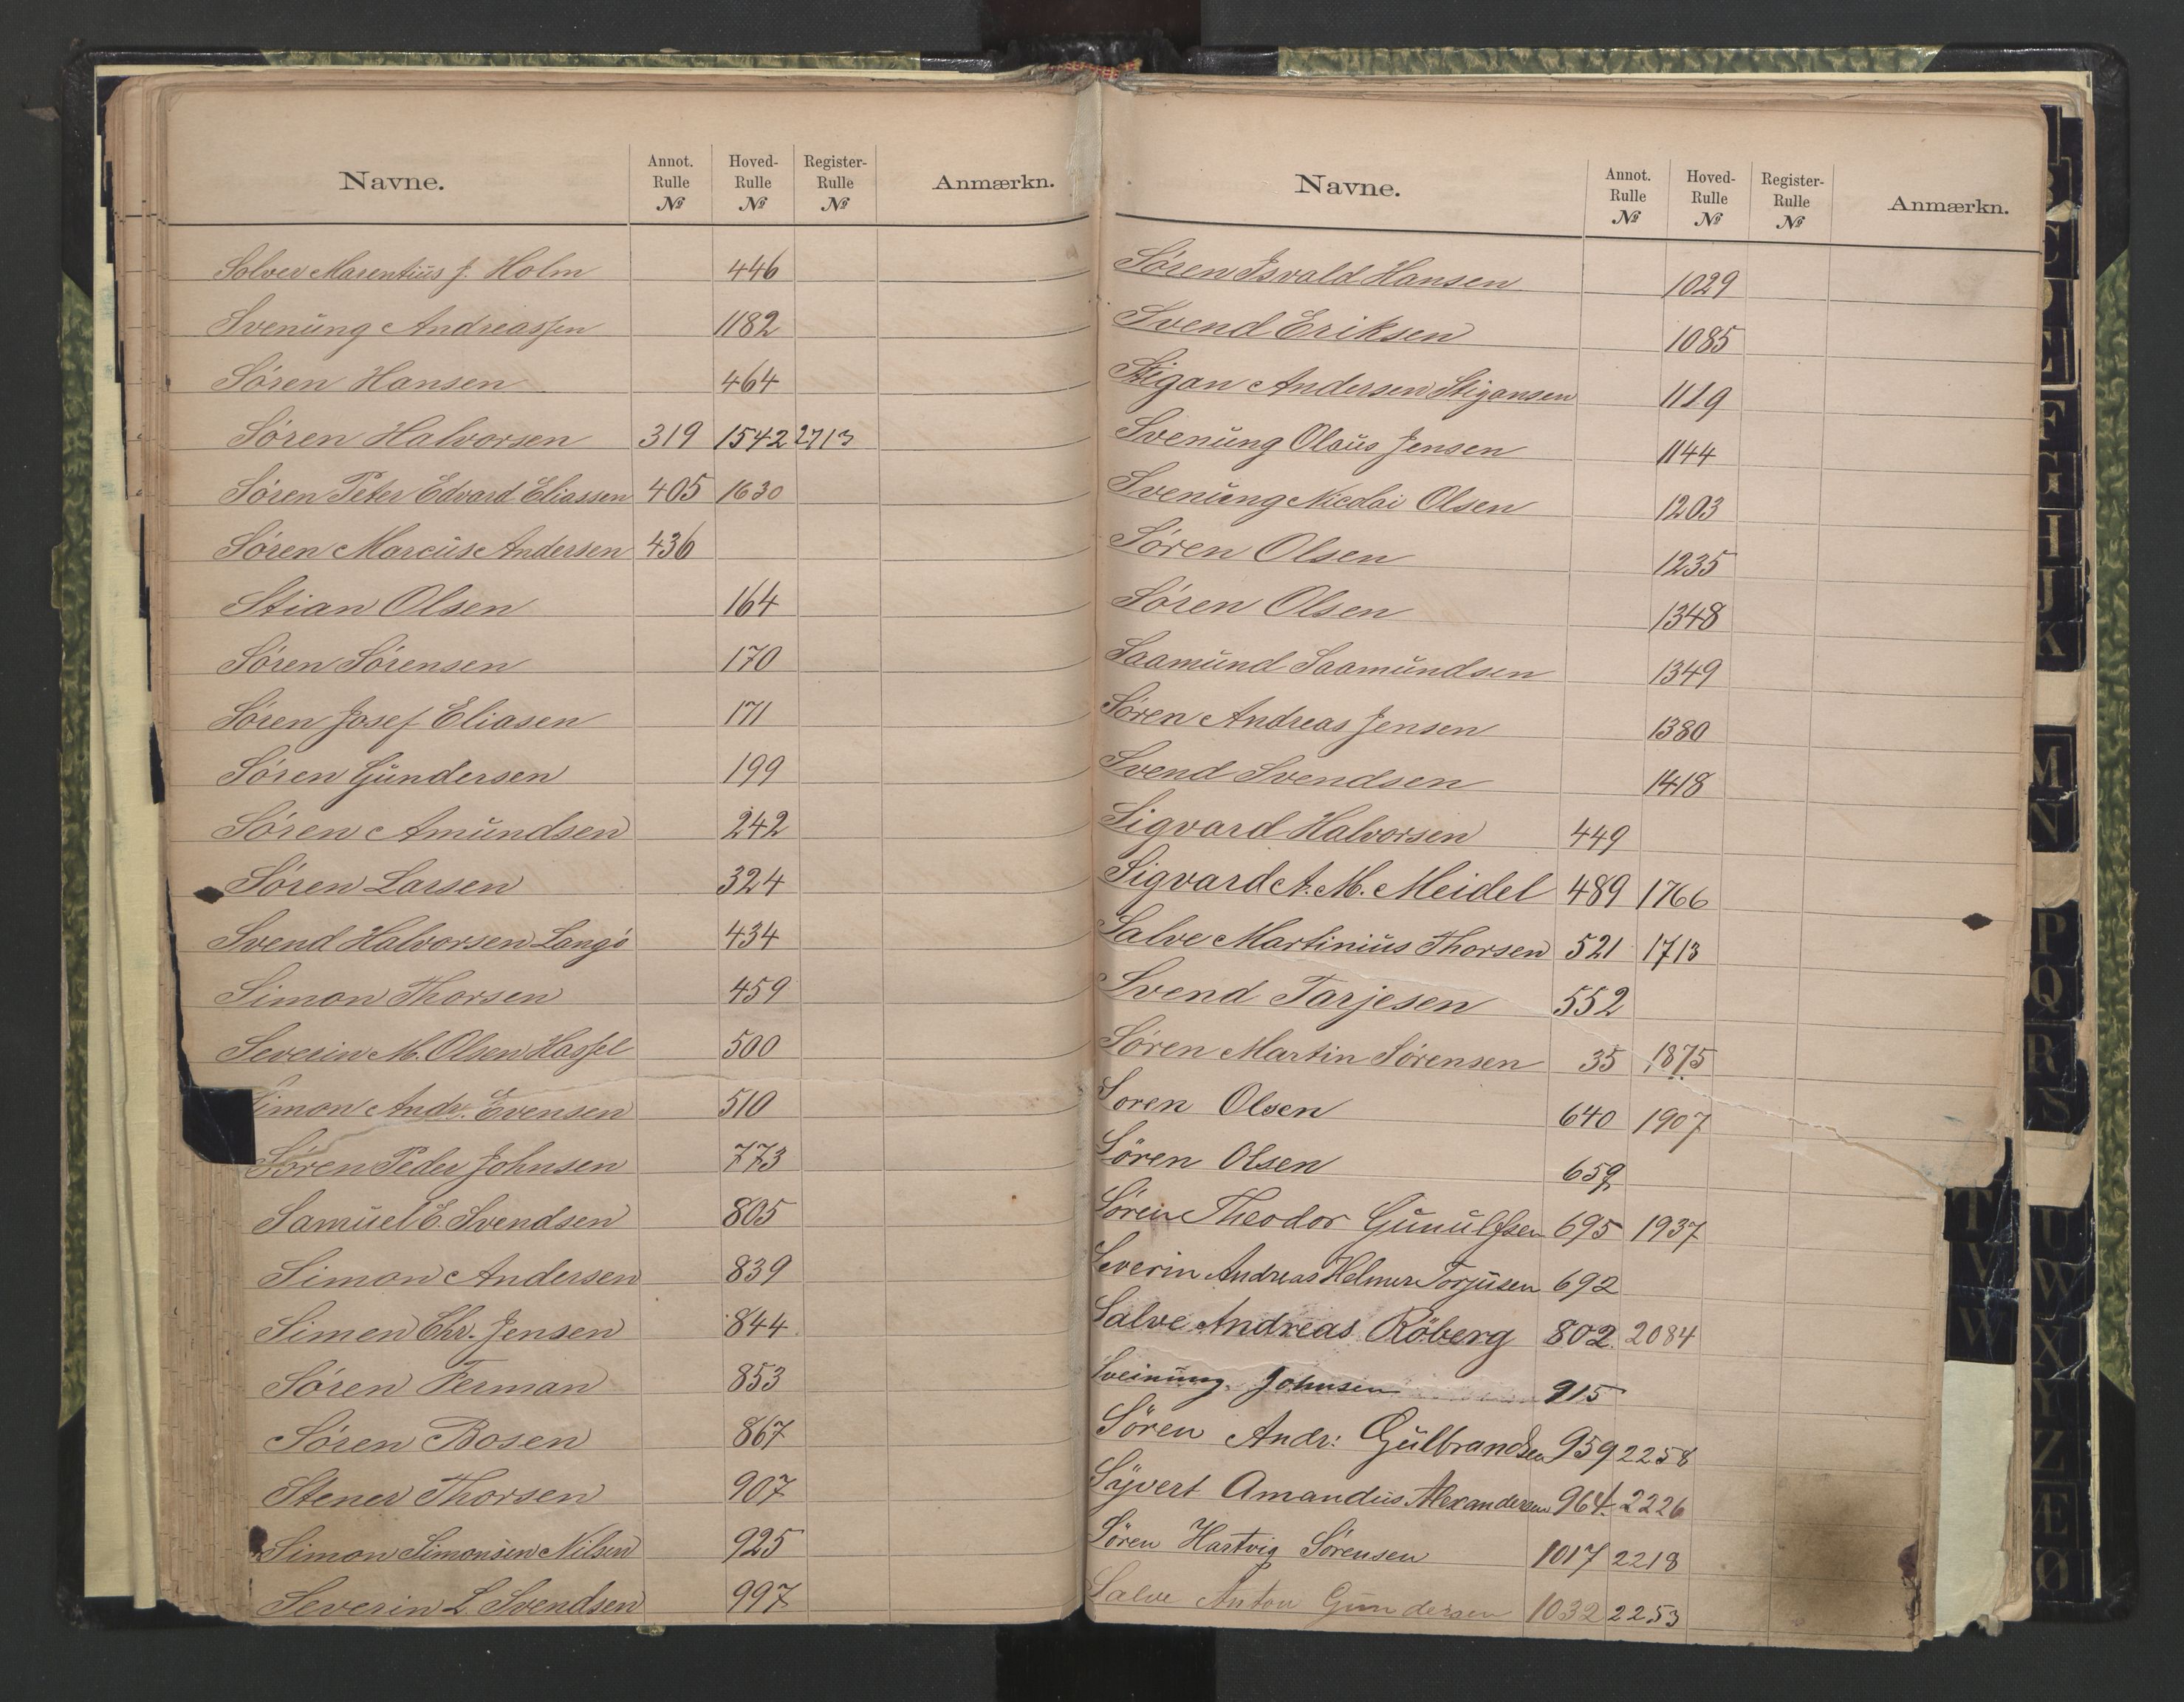 Navne. Annot. Rulle № Hoved-Rulle № Register-Rulle № Anmærkn.
Solver Marentius J. Holm 446
Svenung Andreassen 1182
Søren Hansen 464
Søren Halvorsen 319 1542 2713
Søren Peter Edvard Eliassen 405 1630
Søren Marcus Andersen 436
Stian Olsen 164
Søren Sørensen 170
Søren Josef Eliasen 171
Søren Gundersen 199
Søren Amundsen 242
Søren Larsen 324
Svend Halvorsen Langö 434
Simon Thorsen 459
Severin M. Olsen Hassel 500
Simon Andr. Evensen 510
Søren Peder Johnsen 773
Samuel E. Svendsen 805
Simon Andersen 839
Simen Chr. Jensen 844
Søren Ferman 853
Søren Bosen 867
Stener Thorsen 907
Simon Simonsen Nilsen 925
Severin L Svendsen 997
Navne. Annot. Rulle № Hoved-Rulle № Register-Rulle № Anmærkn.
Søren Isvald Hansen 1029
Svend Eriksen 1085
Stigan Andersen Stigansen 1119
Svenung Olaus Jensen 1144
Svenung Nicolai Olsen 1203
Søren Olsen 1235
Søren Olsen 1348
Saamund Saamundsen 1349
Søren Andreas Jensen 1380
Svend Svendsen 1418
Sigvard Halvorsen 449
Sigvard A. M. Meidel 489 1766
Salve Martinius Thorsen 521 1713
Svend Tarjesen 552
Søren Martin Sørensen 35 1875
Soren Olsen 640 1907
Sören Olsen 659
Søren Theodor Gunulfsen 695 1937
Severin Andreas Helmer Torjusen 692
Salve Andreas Röberg 802 2084
Sveinung Johnsen 915
Sören Andr: Gulbrandsen 959 2258
Syvert Amandus Alexandersen 964 2226
Søren Hartvig Sørensen 1017 2218
Salve Anton Gundersen 1032 2253
E
F
G
H
J
K
M
N
P
Q
R
S
T
V
W
U
W
X
Y
Z
Æ
Ø